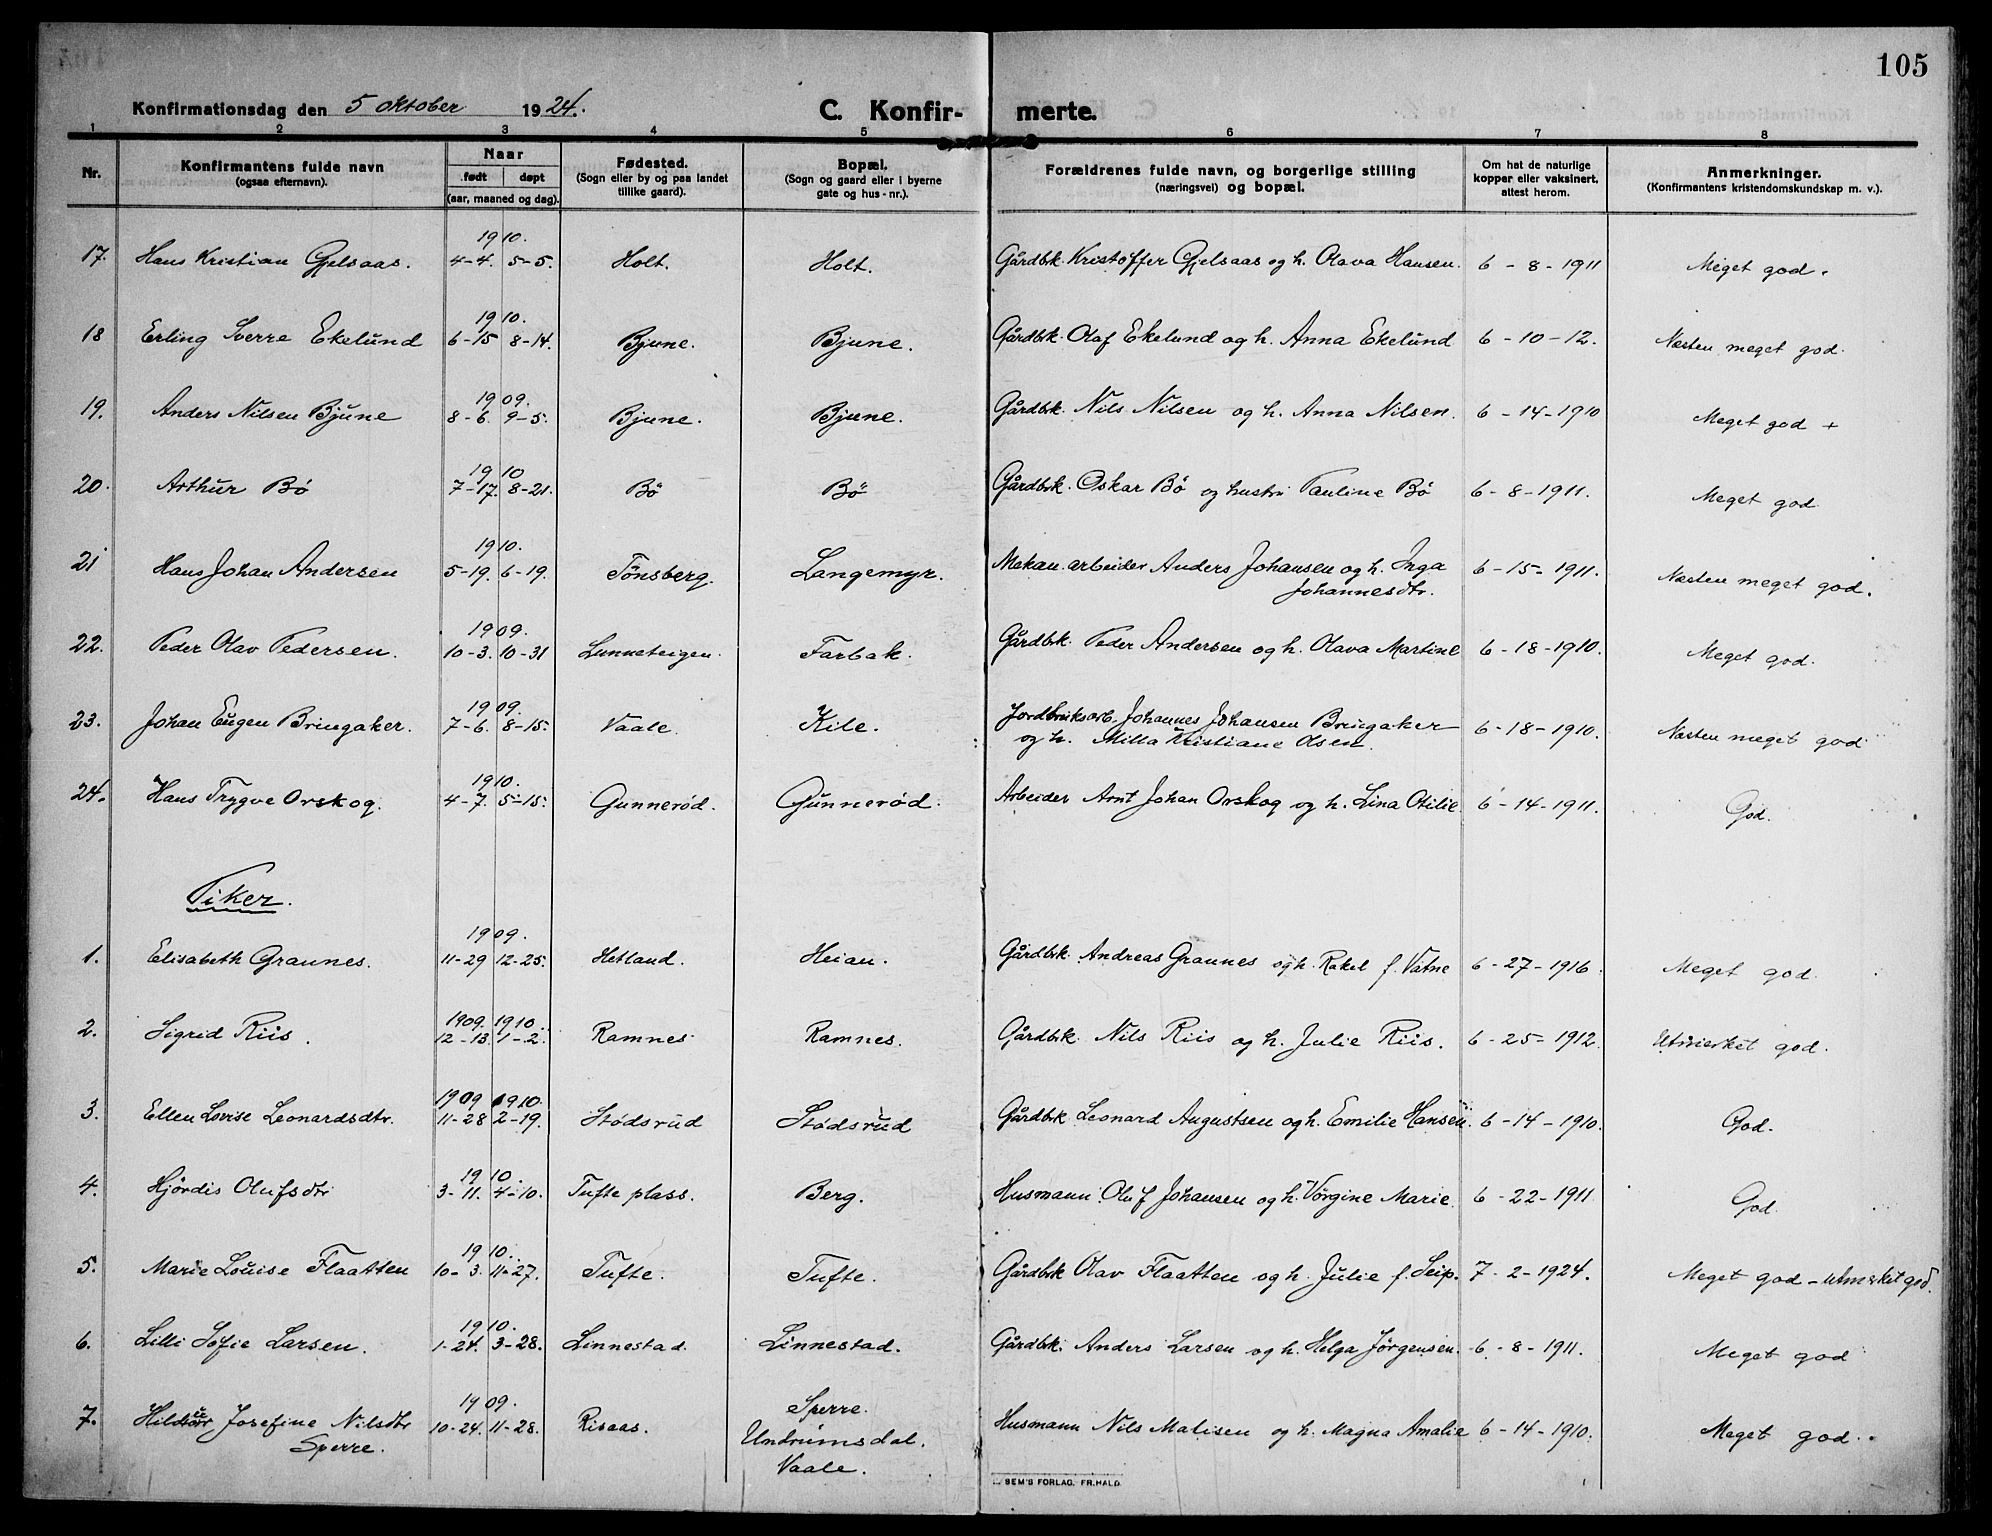 105
Konfirmationsdag den 5 oktober 1924. C. Konfirmerte.
1 2 3 4 5 6 7 8
Nr. Konfirmantens fulde navn (ogsaa efternavn). Naar født døpt (aar, maaned og dag). Fødested. (Sogn eller by og paa landet tillike gaard). Bopæl. (Sogn og gaard eller i byerne gate og hus-nr.). Forældrenes fulde navn, og borgerlige stilling (næringsvei) og bopæl. Om hat de naturlige kopper eller vaksinert, attest herom. Anmerkninger. (Konfirmantens kristendomskundskap m. v.).
1910.
17. Hans Kristian Gjelsaas. 4-4. 5-5. Holt. Holt. Gårdbk. Kristoffer Gjelsaas og h. Olava Hansen. 6-8-1911 Meget god.
1910.
18 Erling Sverre Ekelund 6-15 8-14. Bjune. Bjune. Gårdbk. Olaf Ekelund og h. Anna Ekelund 6-10-12. Næsten meget god.
1909.
19. Anders Nilsen Bjune 8-6. 9-5. Bjune. Bjune. Gårdbk. Nils Nilsen og h. Anna Nilsen. 6-14-1910 Meget god +
1910
20. Arthur Bö 7-17. 8-21. Bö Bö Gårdbk. Oskar Bö og hustru Pauline Bö 6-8-1911. Meget god
1910.
21 Hans Johan Andersen 5-19. 6-19. Tönsberg. Langemyr. Mekan. arbeider Anders Johansen og h. Inga 6-15-1911. Næsten meget god.
Johannesdtr.
1909.
22. Peder Olav Pedersen. 10-3. 10-31 Lunneteigen. Farbak. Gårdbk. Peder Andersen og h. Olava Martine 6-18-1910. Meget god.
1909.
23. Johan Eugen Bringaker. 7-6. 8-15. Vaale. Kile. Jordbruksarb. Johannes Johansen Bringaker 6-18-1910. Næsten meget god
og h. Milla Kristiane Olsen.
1910.
24. Hans Trygve Orskog. 4-7. 5-15. Gunnerød. Gunnerød. Arbeider Arnt Johan Orskog og h. Lina Otilie 6-14-1911. God.
Piker.
1909.
1. Elisabeth Graunes. 11-29 12-25. Hetland. Heian. Gårdbk. Andreas Graunes og h. Rakel f. Vatne 6-27-1916. Meget god.
1909. 1910.
2. Sigrid Riis. 12-13. 1-2. Ramnes Ramnes. Gårdbk. Nils Riis og h. Julie Riis. 6-25-1912. Utmerket god.
1909. 1910.
3. Ellen Lovise Leonardsdtr. 11-28 2-19. Stødsrud Stødsrud Gårdbk Leonard Augustsen og h. Emilie Hansen. 6-14-1910. God.
1910.
4. Hjördis Olufsdtr 3-11. 4-10. Tufte plass. Berg. Husmann Oluf Johansen og h. Vörgine Marie 6-22-1911. God
1910.
5. Marie Louise Flaatten 10-3. 11-27. Tufte. Tufte. Gårdbk Olav Flaatten og h. Julie f. Seip. 7-2-1924. Meget god - utmerket god.
1910.
6. Lilli Sofie Larsen. 1-24. 3-28. Linnestad. Linnestad. Gårdbk. Anders Larsen og h. Helga Jörgensen. 6-8-1911. Meget god
1909. Sperre.
7. Josefine Nilsdtr 10-24. 11-28. Risaas. Undrumsdal. Husmann Nils Malisen og h. Magna Amalie 6-14-1910. Meget god.
Sperre. Vaale.
SEM'S FORLAG, FR.HALD